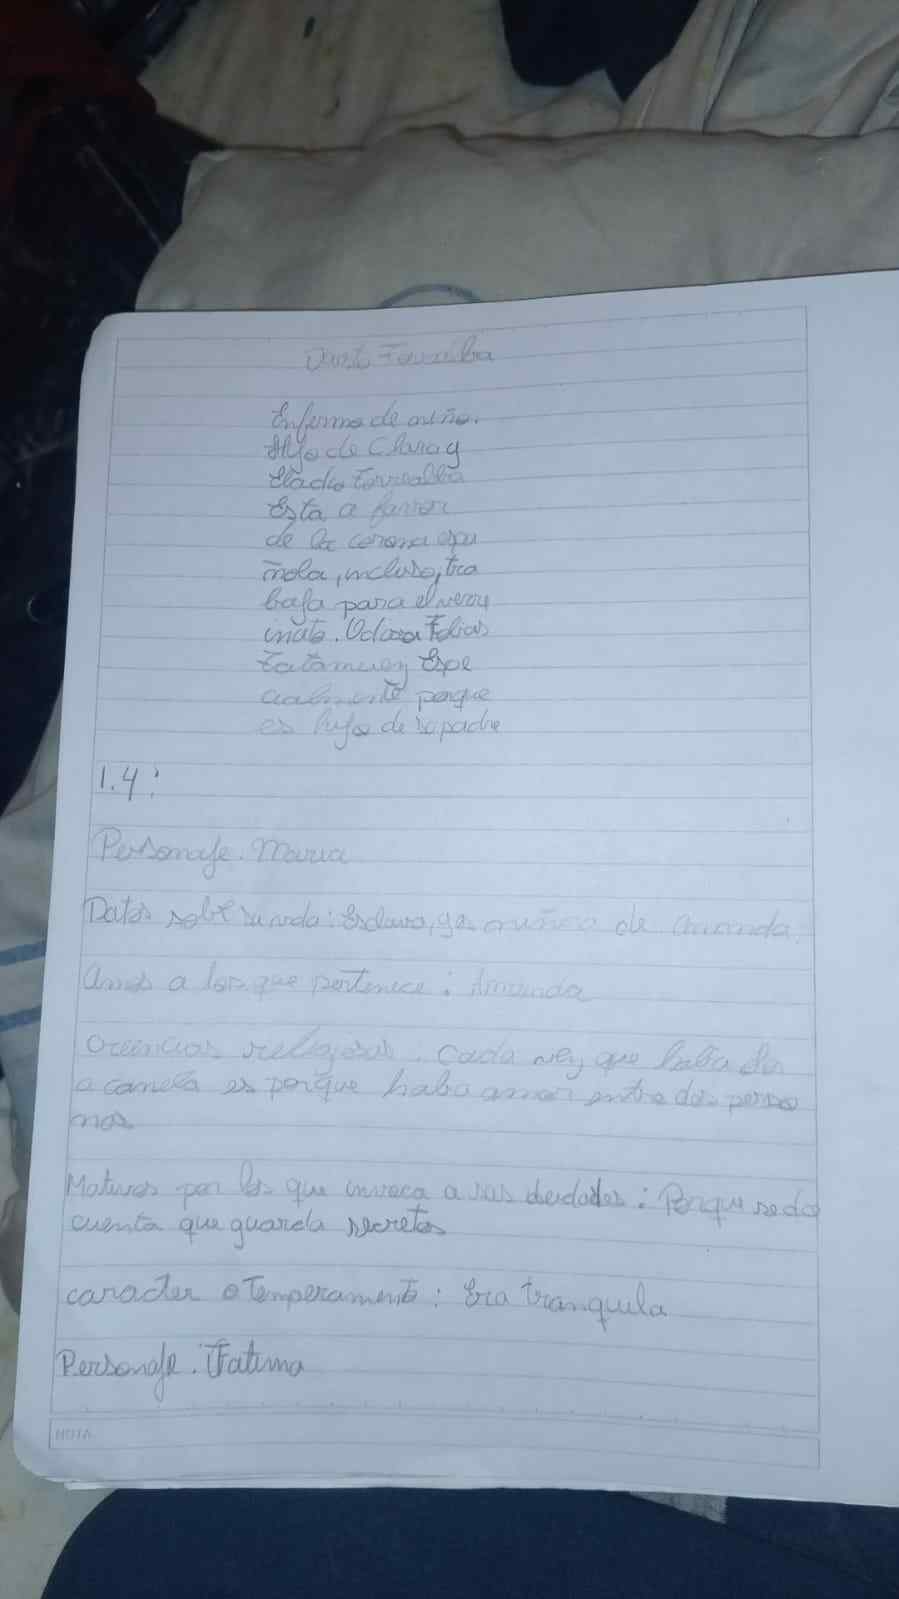 Torrealba
Enfermo de niño.
Hijo de Clara y
Eladio Torrealba
Esta a favor
de la corona espa
ñola, incluso, tra
baja para el virrey
inato. Odia a
Espe
cialmente porque
es hijo de su padre
1.4:
Personaje. Maria
Datos sobre su vida: Esclava, ya de Amanda.
Amos a los que pertenece: Amanda
creencias religiosas. Cada vez que
a canela es porque habia amor entre dos perso
nas
Motivos por los que invoca a sus deidades: Porque se da
cuenta que guarda secretos
caracter o Temperamento: Era tranquila
Personaje. Fatima
NOTA